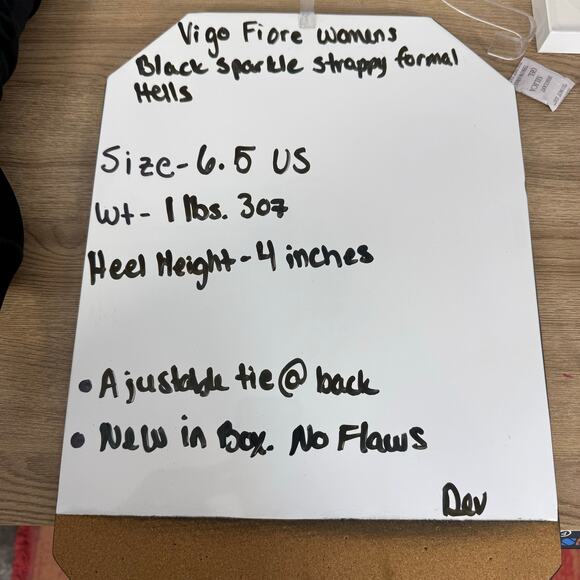 Vigo Fiore womens
Black sparkle strappy formal
Hells
Size - 6.5 US
Wt - 1 lbs. 3oz
Heel Height - 4 inches
• Ajustable tie @ back
• New in Box. No Flaws
Dev